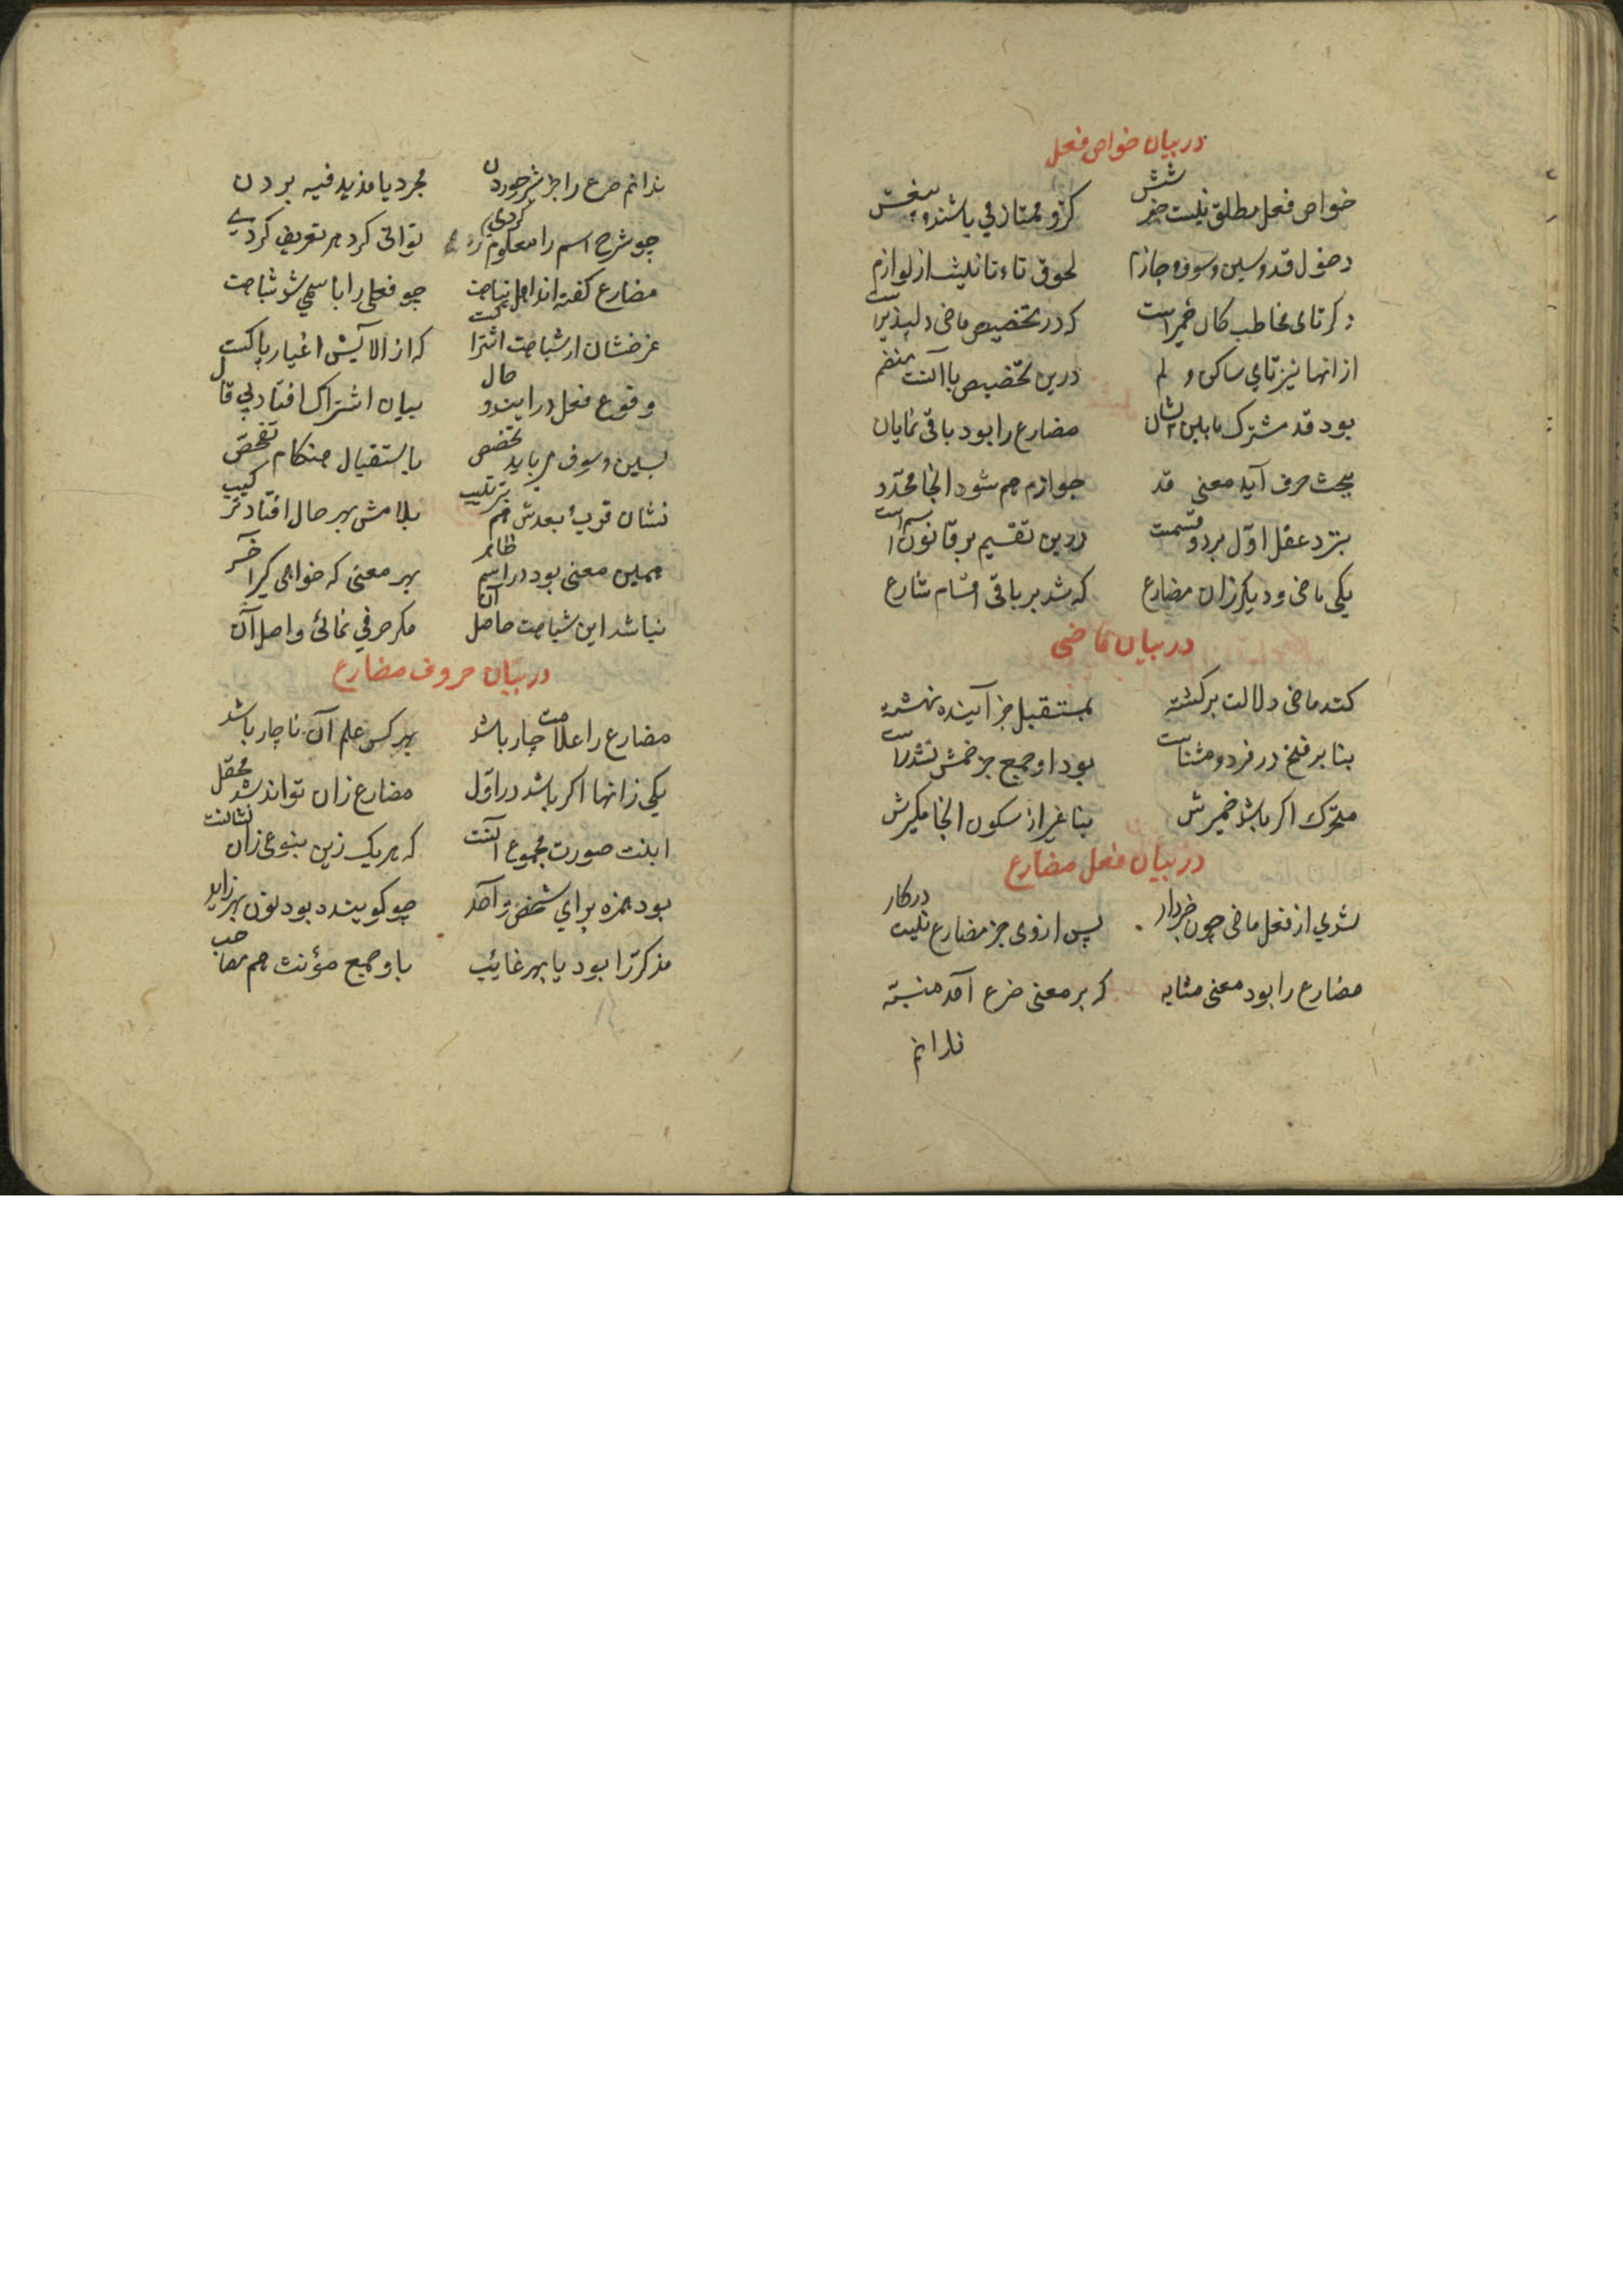 در بیان خواص فعل
خواص فعل مطلق نیست جز شش کزو ممتاز می باشند بیغش
دخول قد و سین و سوف و جازم لحوق تاء تانیث از لوازم
دکر تای مخاطب کان ضمیر است که در تخصیص ماضی دلپذیر است
از انها نیز تای ساکن و لم درین تخصیص با آنست منضم
بود قد مشترک مابین ایشان مضارع را بود باقی نمایان
ببحث حرف آید معنی قد جوازم هم شود انجا محدد
بنزد عقل اول بر دو قسمست درین تقسیم بر قانون اسم است
یکی ماضی و دیکر زان مضارع که شد بر باقی اقسام شارع
در بیان ماضی
کند ماضی دلالت بر کذشته بمستقبل جز آینده نهشته
بنا بر فتح در فرد و مثناست بود او جمع جز ضمش نشد راست
متحرک اکر باشد ضمیرش بنا غیر از سکون انجا مکیرش
در بیان فعل مضارع
شدی از فعل ماضی چون خبردار پس از وی جز مضارع نیست در کار
مضارع را بود معنی مشابه که بر معنی ضرع آمد منبه
ندانم
ندانم ضرع را جز شیر خوردن مجرد یا مزید فیه بردن
چو شرح اسم را معلوم کردی توانی کرد هر تعریف کردی
مضارع کفته اند اهل نباهت چو فعلی را با سمی شد شباهت
غرضشان از شباهت اشتراکست که از الایش اغیار پاکست
وقوع فعل در آینده و حال بیان اشتراک افتاد بی قال
بسین و سوف می باید تخصص باستقبال هنکام تفحص
نشان قرب و بعدش هم بترتیب بلامش بهر حال افتاد ترکیب
همین معنی بود در اسم ظاهر بهر معنی که خواهی کیر آخر
نباشد این شباهت حاصل آن مکر حرفی نمائی واصل آن
در بیان حروف مضارع
مضارع را علامت چار باشد بهر کس علم آن ناچار باشد
یکی زانها اکر باشد در اول مضارع زان تواند شد محقل
اینت صورت مجموع آنست که هر یک زین بنوعی زان نشانست
بود همزه برای شخص واحد چو کوینده بود نون بهر زاید
مذکر را بود یا بهر غایب با و جمع مؤنث هم مصاحب